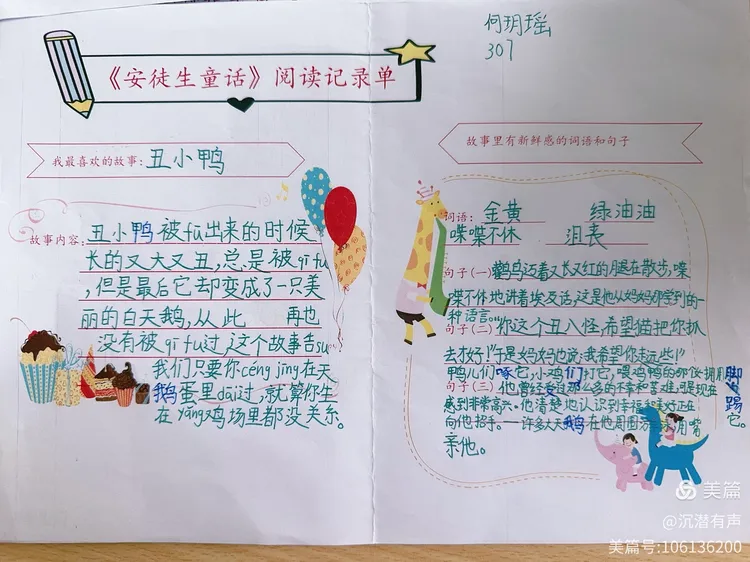 何玥瑶
307
《安徒生童话》阅读记录单
我最喜欢的故事：丑小鸭
故事内容：丑小鸭被fū出来的时候
长的又大又丑，总是被qī fu
，但是最后它去却变成了一只美
丽的白天鹅，从此 再也
没有被qī fu过，这个故事告su
我们只要你céng jīng在天
鹅蛋里dāi过，就算你生
在yǎng鸡场里都没关系。
故事里有新鲜感的词语和句子
词语：金黄 绿油油
喋喋不休 沮丧
句子(一)鹳鸟迈着又长又红的腿在散步，喋
喋不休地讲着埃及话，这是他从妈妈那学到的一
种语言。
句子(二)你这个丑八怪，希望猫把你抓
去才好！于是妈妈也说：我希望你走远些！
鸭儿们啄它，小鸡们打它，喂鸡鸭的那个女佣用脚
踢它。
句子(三)他曾经受过那么多的不幸和苦难，可是现在
感到非常高兴。他清楚地认识到幸福和美好正在
向他招手。许多大天鹅在他周围 用嘴
亲他。
美篇
@沉潜有声
美篇号:106136200